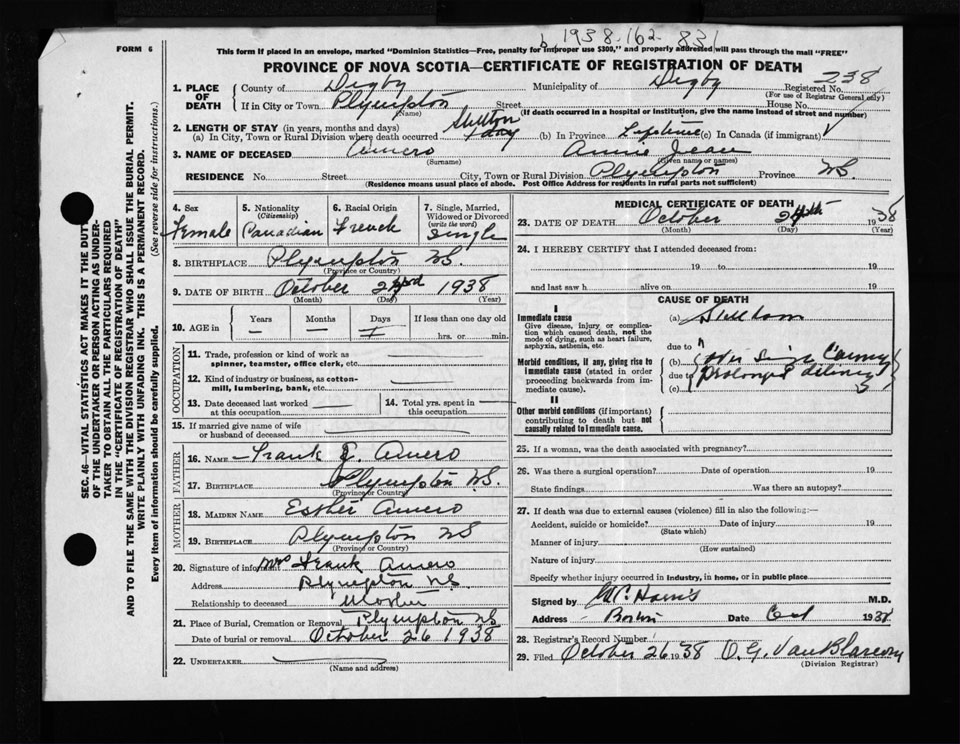 1938.162 831
FORM 6
This form if placed in an envelope, marked "Dominion Statistics—Free, penalty for improper use $300," and properly addressed will pass through the mail "FREE"
PROVINCE OF NOVA SCOTIA—CERTIFICATE OF REGISTRATION OF DEATH
SEC. 46—VITAL STATISTICS ACT MAKES IT THE DUTY
OF THE UNDERTAKER OR PERSON ACTING AS UNDER-
TAKER TO OBTAIN ALL THE PARTICULARS REQUIRED
IN THE "CERTIFICATE OF REGISTRATION OF DEATH"
AND TO FILE THE SAME WITH THE DIVISION REGISTRAR WHO SHALL ISSUE THE BURIAL PERMIT.
WRITE PLAINLY WITH UNFADING INK. THIS IS A PERMANENT RECORD.
Every item of information should be carefully supplied. (See reverse side for instructions.)
1. PLACE OF DEATH
County of Digby Municipality of Digby Registered No. 238
(For use of Registrar General only)
If in City or Town Plympton Street House No.
(Name) (If death occurred in a hospital or institution, give the name instead of street and number)
2. LENGTH OF STAY (in years, months and days)
(a) In City, Town or Rural Division where death occurred (b) In Province Lifetime (c) In Canada (if immigrant)
3. NAME OF DECEASED Amero Annie Jean
(Surname) (Given name or names)
RESIDENCE No. Street City, Town or Rural Division Plympton Province NS.
(Residence means usual place of abode. Post Office Address for residents in rural parts not sufficient)
4. Sex Female
5. Nationality (Citizenship) Canadian
6. Racial Origin French
7. Single, Married, Widowed or Divorced (write the word) Single
8. BIRTHPLACE Plympton NS.
(Province or Country)
9. DATE OF BIRTH October 1938
(Month) (Day) (Year)
10. AGE in Years Months Days If less than one day old
— — hrs. or min.
OCCUPATION
11. Trade, profession or kind of work as spinner, teamster, office clerk, etc.
12. Kind of industry or business, as cotton-mill, lumbering, bank, etc.
13. Date deceased last worked at this occupation
14. Total yrs. spent in this occupation
15. If married give name of wife or husband of deceased
FATHER
16. NAME Frank Amero
17. BIRTHPLACE Plympton NS.
(Province or Country)
MOTHER
18. MAIDEN NAME Esther Amero
19. BIRTHPLACE Plympton NS
(Province or Country)
20. Signature of informant Mrs Frank Amero
Address Plympton NS
Relationship to deceased Mother
21. Place of Burial, Cremation or Removal Plympton NS
Date of burial or removal October 26 1938
22. UNDERTAKER
(Name and address)
MEDICAL CERTIFICATE OF DEATH
23. DATE OF DEATH October 24th 1938
(Month) (Day) (Year)
24. I HEREBY CERTIFY that I attended deceased from:
19 to 19
and last saw h alive on 19
CAUSE OF DEATH
I
Immediate cause
Give disease, injury or complication which caused death, not the mode of dying, such as heart failure, asphyxia, asthenia, etc.
(a) Still born
due to
Morbid conditions, if any, giving rise to immediate cause (stated in order proceeding backwards from immediate cause).
(b)
due to Prolonged
(c)
II
Other morbid conditions (if important) contributing to death but not causally related to immediate cause.
25. If a woman, was the death associated with pregnancy?
26. Was there a surgical operation? Date of operation 19
State findings Was there an autopsy?
27. If death was due to external causes (violence) fill in also the following:—
Accident, suicide or homicide? Date of injury 19
(State which)
Manner of injury
(How sustained)
Nature of injury
Specify whether injury occurred in industry, in home, or in public place
Signed by M.D.
Address Date Oct 1938
28. Registrar's Record Number
29. Filed October 26 1938 O. G. Van Blarcom
(Division Registrar)